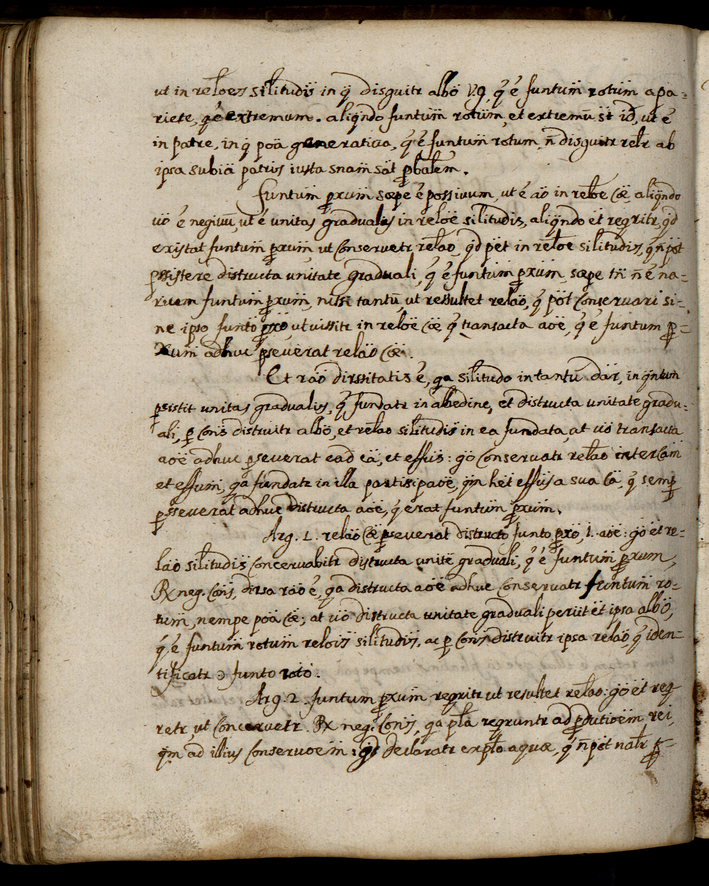 ut in reloēs silitudis in q̄ disguitr albō v.g. q̄ ē funtum̄ rotum̄ a pa-
riete, q̄ ē extremum. aliqn̄do funtum̄ rotum̄, et extremū st id̄, ut ē
in patre, in q̄ poā generativa, q̄ ē funtum̄ rotum, n̄ disguitr relr ab
ipsa subiā patris iuxta snam̄ sat p̱balem.
Funtum̄ p̱xum sæpe ē possivum, ut ē aō in relōe cæ, aliqn̄do
vō ē negivū, ut ē unitas gradualis in relōe silitudis, aliqn̄do et reqritr, qd̄
existat funtum p̱xum ut conservetr relaō, qd̄ pēt in relōe silitudis, q̄ n̄ pōt
p̱sistere distructa unitate graduali, q̄ ē funtum p̱xum, sæpe tn̄ n̄ ē na-
rium funtum̄ p̱xum̄, nissi tantū ut resultet relaō, q̄ pōt conservari si-
ne ipso funto p̱xō, ut vissitr in relōe cæ q̄ transacta aōe, q̄ ē funtum p̱-
xum adhuc p̱severat relaō cæ.
Et raō dirssitatis ē, qa silitudo in tantū datr, in qn̄tum
p̱sistit unitas gradualis, q̄ fundatr in albedine, et distructa unitate gradu-
ali, p̱ cons̄ distruitr albō, et relaō silitudis in ea fundata, at vō transacta
aōe adhuc p̱severat ead̄ cā, et effus̄: gō conservatr relaō inter cām
et effum̄, qa fundatr in illa partisipaōe, qm̄ het effus̄ a sua cā, q̄ semp̱
p̱sseverat adhuc distructa aōe, q̄ erat funtum̄ p̱xum.
Arg. 1. relaō cæ p̱severat distructo funto p̱xo, i. aōe: gō et re-
laō silitudis concervabitr distructa unite graduali, q̄ ē funtum̄ p̱xum,
Rx neg. cons̄, dirsa raō ē, qa distructa aōe adhuc conservatr funtum̄ ro-
tum, nempe poā cæ; at vō distructa unitate graduali periit et ipsa albō,
q̄ ē funtum̄ rotum relois̄ silitudis, ac p̱ cons̄ distruitr ipsa relaō, q̄ iden-
tificatr ɔ funto roto.
Arg. 2. funtum̄ p̱xum reqritr ut resultet relaō: gō et req-
retr, ut concervetr. Rx neg. cons̄, qa plā reqruntr ad p̱dutioēm rei,
qm̄ ad illius conservoēm: qd̄ declaratr explo aquæ, q̄ n̄ pōt natlr p̱-